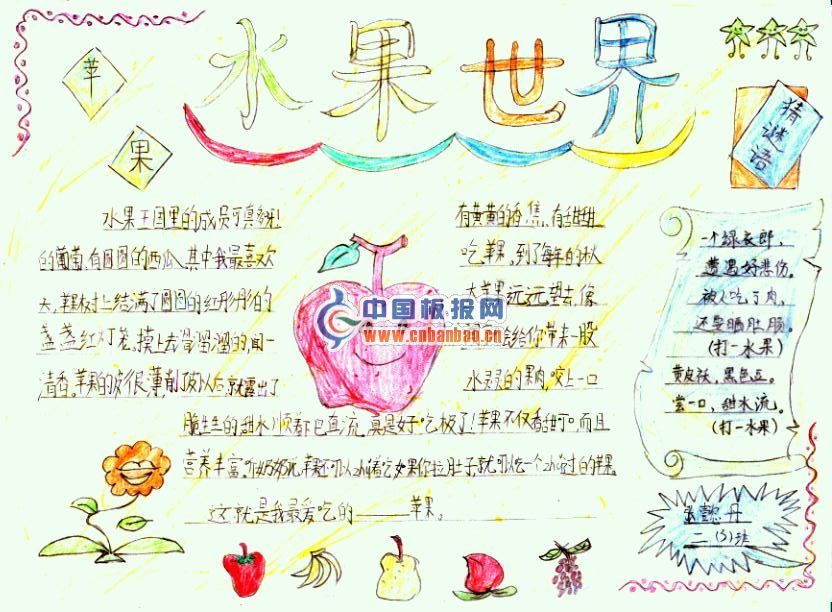 水果世界
苹
果
猜谜语
水果王国里的成员可真多呀!有黄黄的香蕉,有甜甜
的葡萄,有圆圆的西瓜,其中我最喜欢吃苹果,到了每年的秋
天,苹果树上结满了圆圆的红彤彤的大苹果远远望去,像
盏盏红灯笼。摸上去滑溜溜的,闻一 会给你带来一股
清香。苹果的皮很薄,削了皮以后就露出了水灵灵的果肉,咬上一口
脆生生的甜水顺着 巴直流,真是好吃极了!苹果不仅香甜可口,而且
营养丰富。听奶奶说,苹果还可以zhǔ着吃如果你拉肚子就可以吃一个zhǔ过的苹果。
这就是我最爱吃的——苹果。
中国板报网
www.cnbanbao.cn
一个绿衣郎,
遭遇好悲伤。
被人吃了肉,
还要晒肚肠。
(打一水果)
黄皮袄,黑色豆。
尝一口,甜水流。
(打一水果)
懿丹
二(5)班